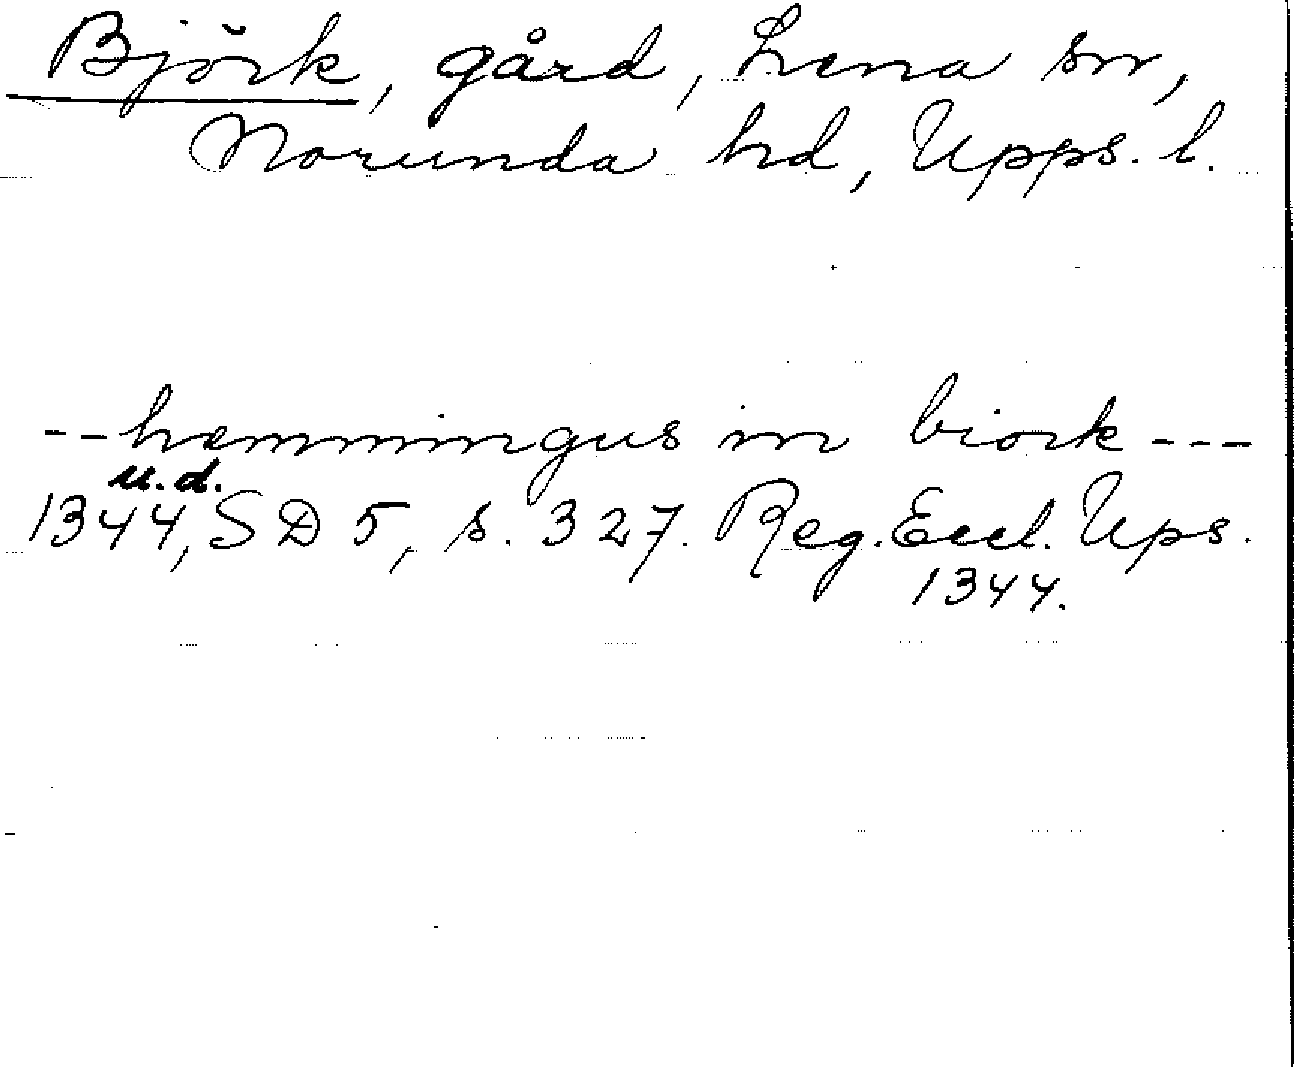 Björk, gård, Lena sn,
Norunda hd, Upps. l.
-- hemmingus in biork ---
u.d.
1344, SD 5, s. 327. Reg. Eccl. Ups.
1344.